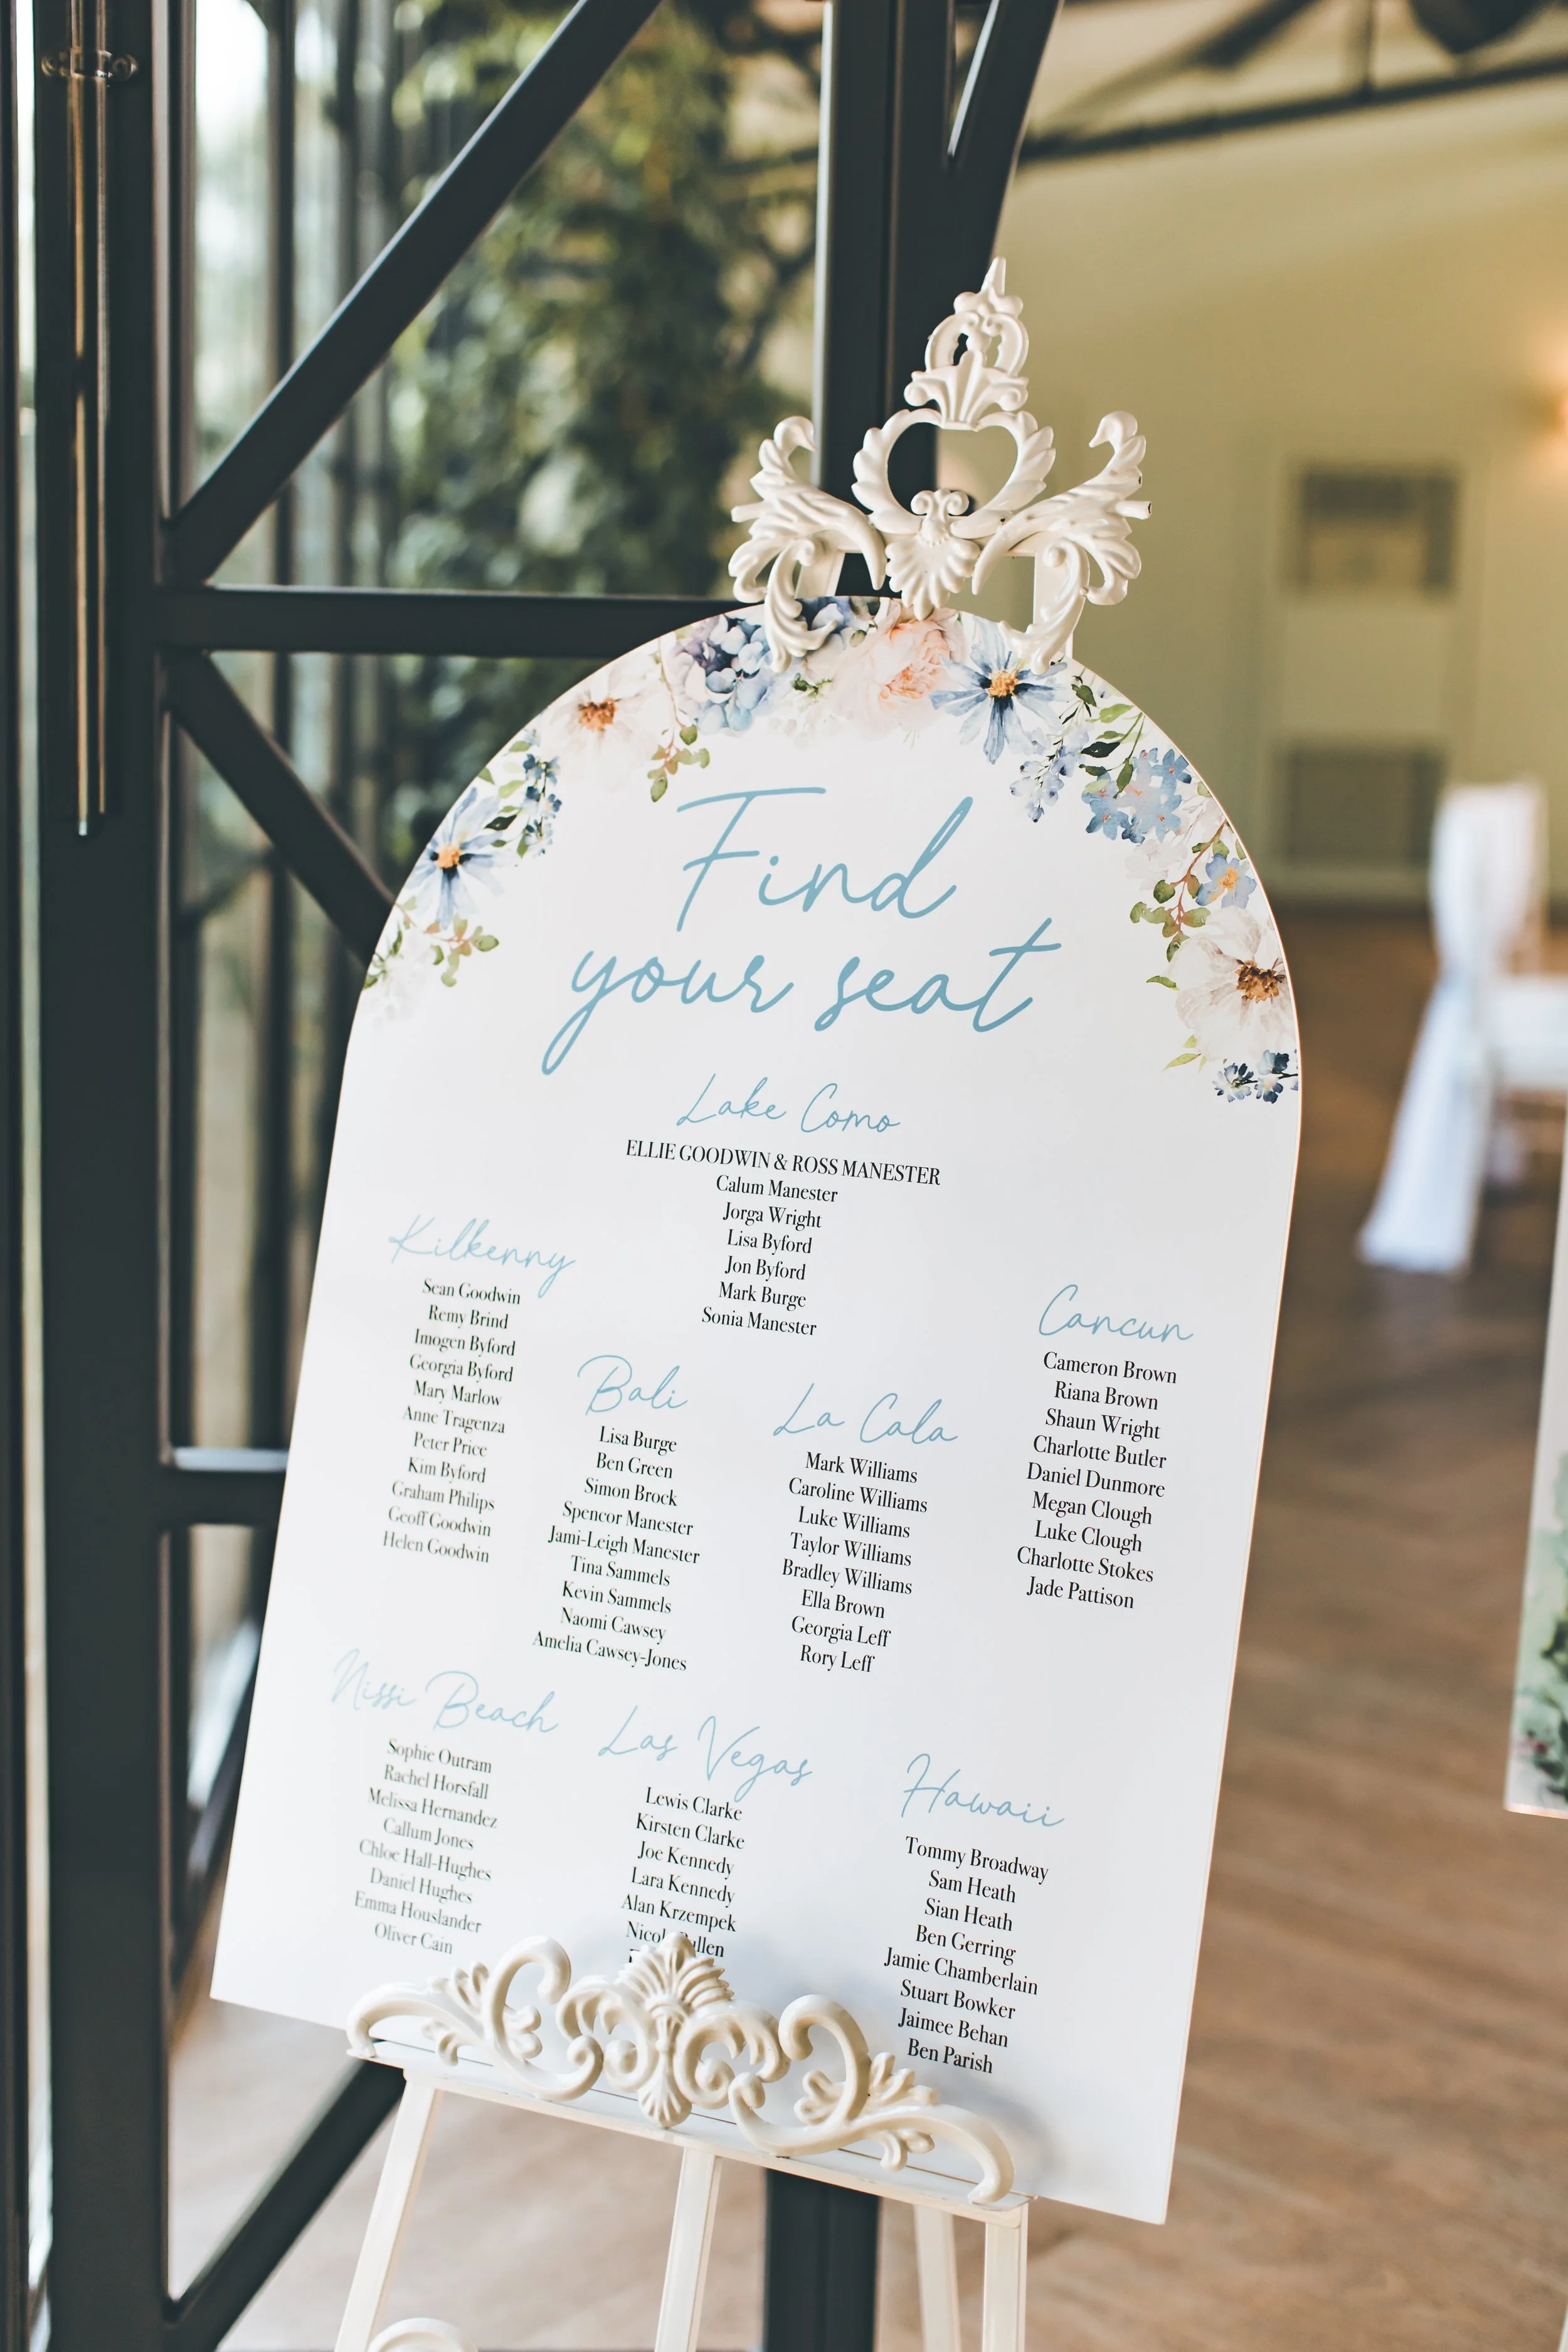 Find
your seat
Lake Como
ELLIE GOODWIN & ROSS MANESTER
Calum Manester
Jorga Wright
Lisa Byford
Jon Byford
Mark Burge
Sonia Manester
Kilkenny
Sean Goodwin
Remy Brind
Imogen Byford
Georgia Byford
Mary Marlow
Anne Tragenza
Peter Price
Kim Byford
Graham Philips
Geoff Goodwin
Helen Goodwin
Bali
Lisa Burge
Ben Green
Simon Brock
Spencor Manester
Jami-Leigh Manester
Tina Sammels
Kevin Sammels
Naomi Cawsey
Amelia Cawsey-Jones
La Cala
Mark Williams
Caroline Williams
Luke Williams
Taylor Williams
Bradley Williams
Ella Brown
Georgia Leff
Rory Leff
Cancun
Cameron Brown
Riana Brown
Shaun Wright
Charlotte Butler
Daniel Dunmore
Megan Clough
Luke Clough
Charlotte Stokes
Jade Pattison
Nissi Beach
Sophie Outram
Rachel Horsfall
Melissa Hernandez
Callum Jones
Chloe Hall-Hughes
Daniel Hughes
Emma Houslander
Oliver Cain
Las Vegas
Lewis Clarke
Kirsten Clarke
Joe Kennedy
Lara Kennedy
Alan Krzempek
Hawaii
Tommy Broadway
Sam Heath
Sian Heath
Ben Gerring
Jamie Chamberlain
Stuart Bowker
Jaimee Behan
Ben Parish